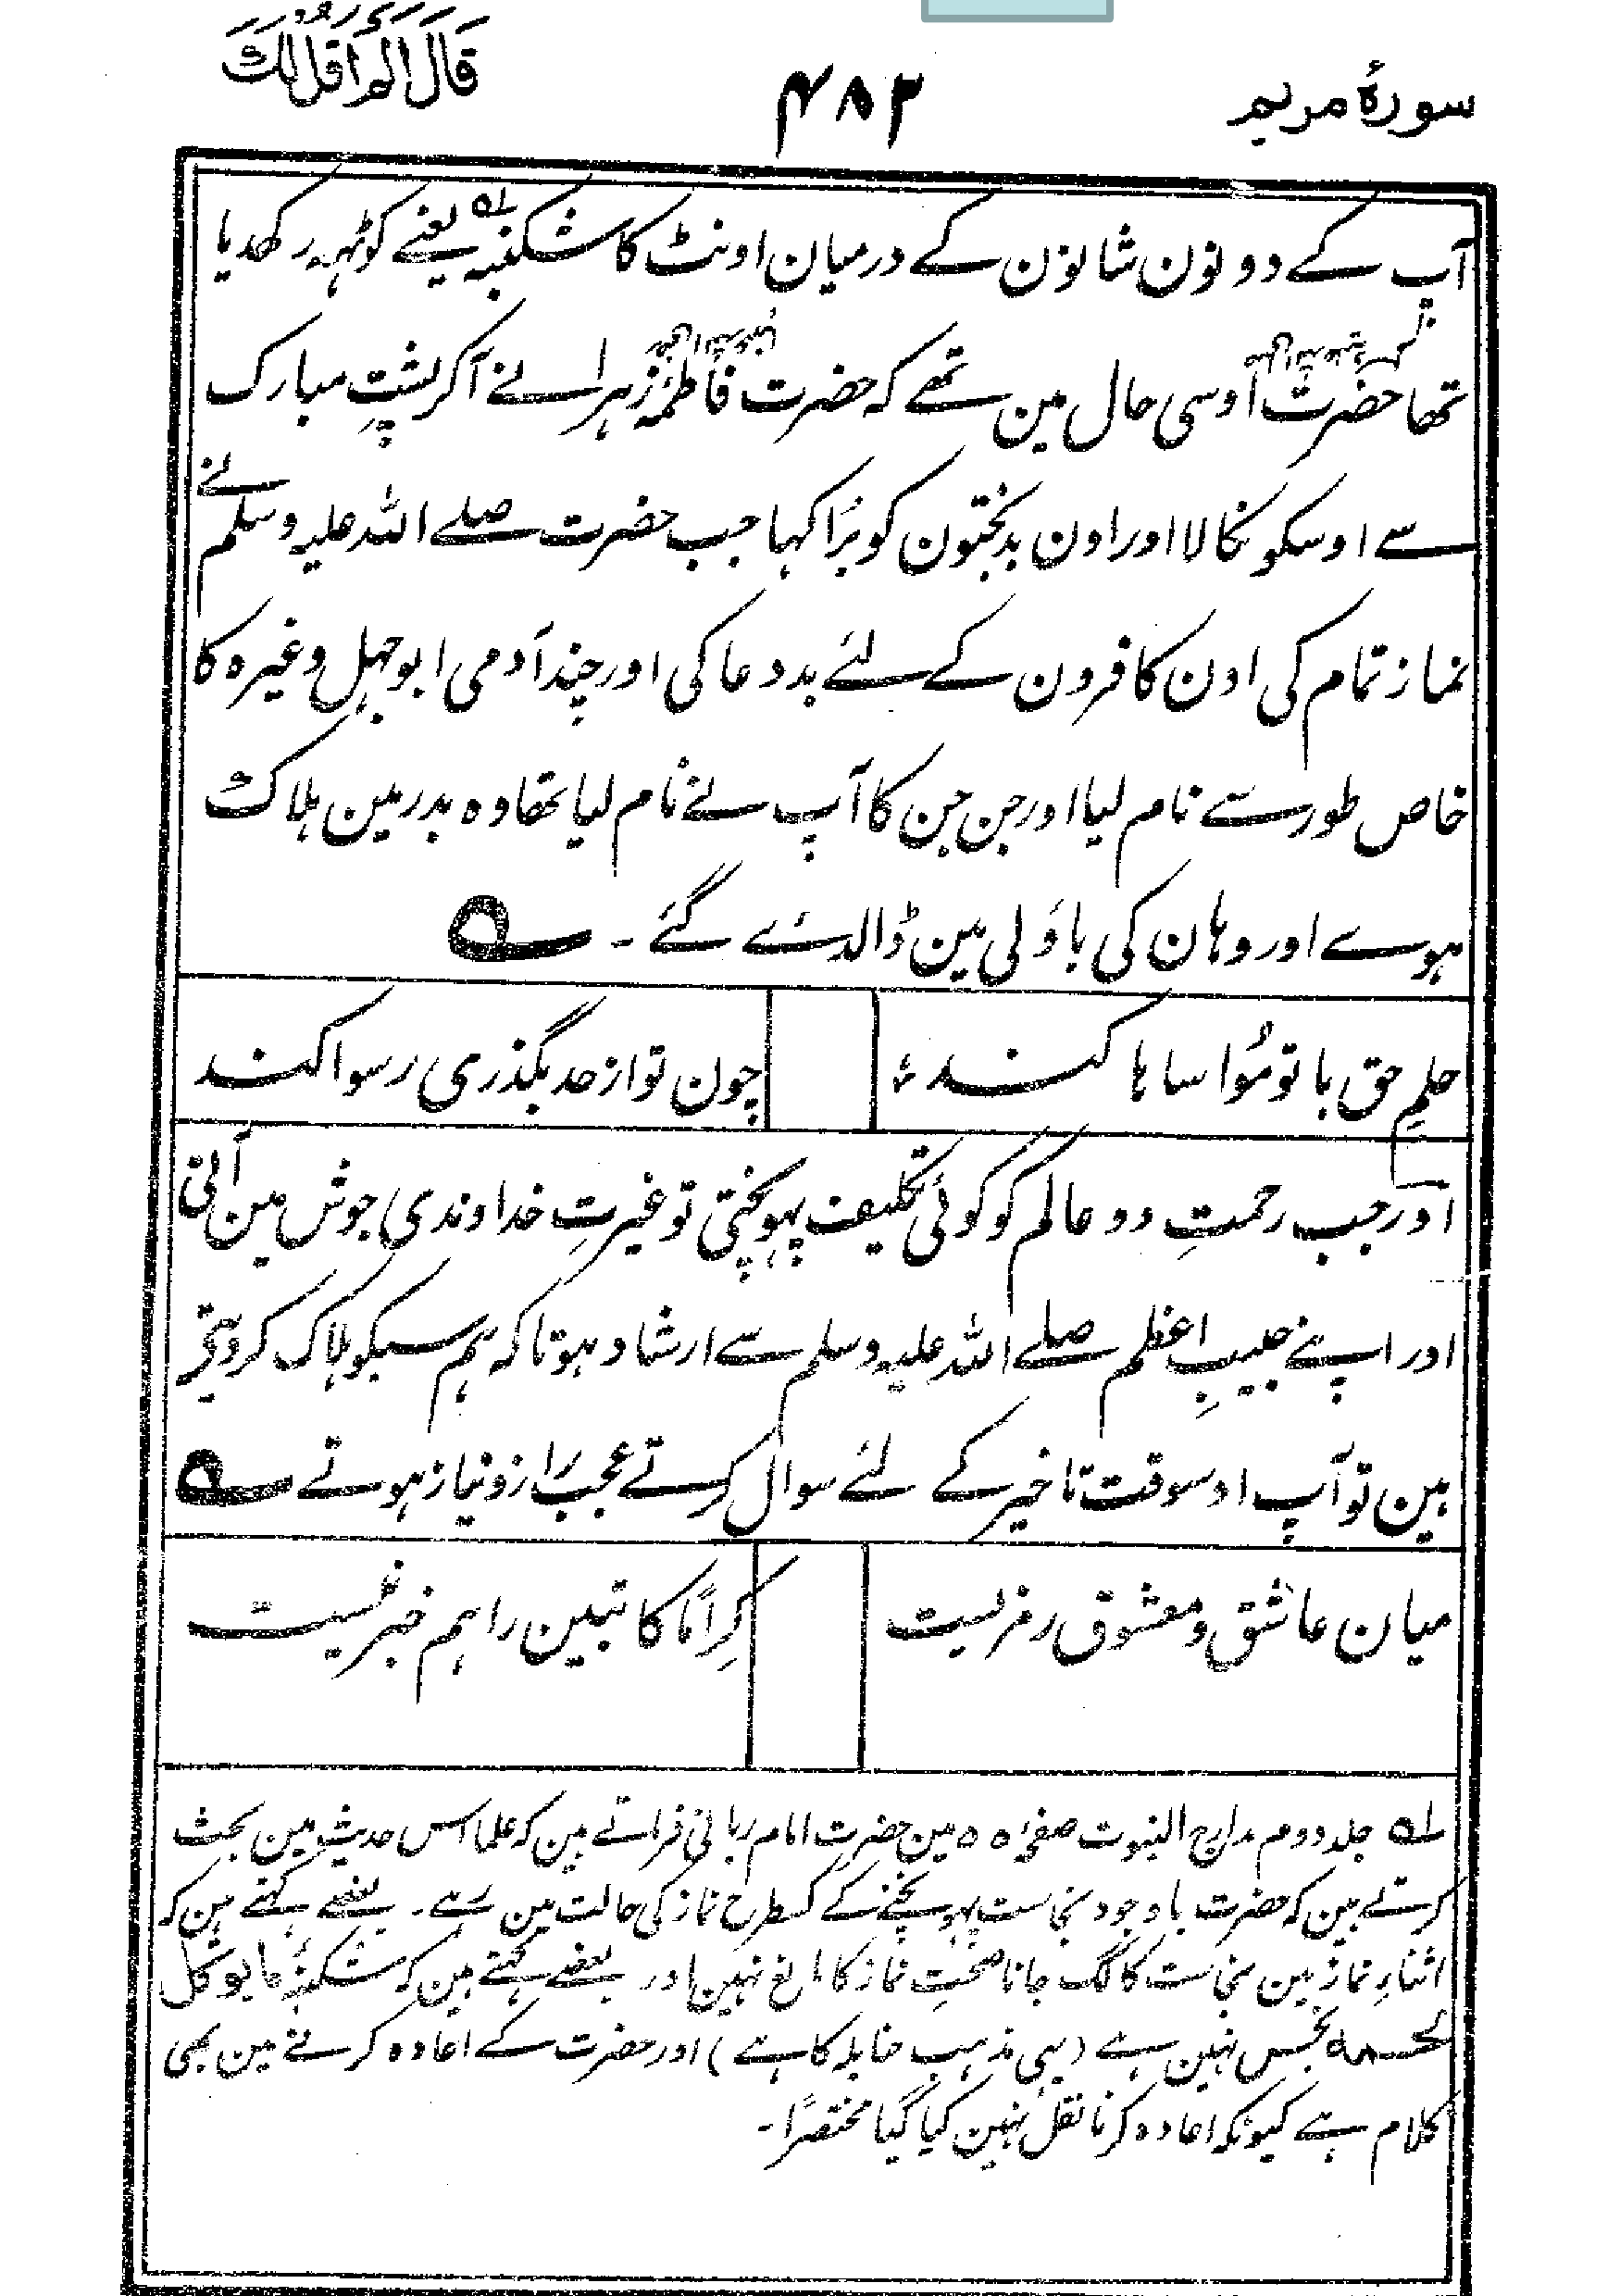 سورۂ مریم
۴۸۲
قَالَ اَلَمْ اَقُلْ لَّكَ
آپ کے دونون شانون کے درمیان اونٹ کا شکنبہ لہ یعنے کوٹہہ رکھدیا
تھا حضرت اوسی حال مین تھے کہ حضرت فاطمۂ زہرا نے آکر پشتِ مبارک
سے اوسکو نکالا اور اون بدبختون کو بُرا کہا جب حضرت صلے اللہ علیہ وسلم نے
نماز تمام کی اون کافرون کے لئے بددعا کی اور چند آدمی ابوجہل وغیرہ کا
خاص طور سے نام لیا اور جن جن کا آپ نے نام لیا تھا وہ بدر مین ہلاک
ہوے اور وہان کی باؤلی مین ڈالدئے گئے ۔ ؎
حلمِ حق با تو مُواساہا کند ؛ چون تو از حد بگذری رسوا کند
اور جب رحمتِ دو عالم کو کوئی تکلیف پہونچتی تو غیرتِ خداوندی جوش مین آتی
اور اپنے حبیبِ اعظم صلے اللہ علیہ وسلم سے ارشاد ہوتا کہ ہم سبکو ہلاک کردیتے
ہین تو آپ اوسوقت تاخیر کے لئے سوال کرتے عجب راز و نیاز ہوتے ؎
میان عاشق و معشوق رمزیست کِراماً کاتبین را ہم خبر نیست
لہ جلد دوم مدارج النبوت صفحۂ ۵۵ مین حضرت امام ربانی فرماتے ہین کہ علما اس حدیث مین بحث
کرتے ہین کہ حضرت باوجود نجاست پہونچنے کے کسطرح نماز کی حالت مین رہے۔ بعضے کہتے ہین کہ
اثناءِ نماز مین نجاست کا لگ جانا صحتِ نماز کا مانع نہین اور بعضے کہتے ہین کہ شکنبۂ مایوکل
لحمہ نجس نہین ہے (یہی مذہب حنابلہ کا ہے) اور حضرت کے اعادہ کرنے مین بھی
کلام ہے کیونکہ اعادہ کرنا نقل نہین کیا گیا مختصراً۔